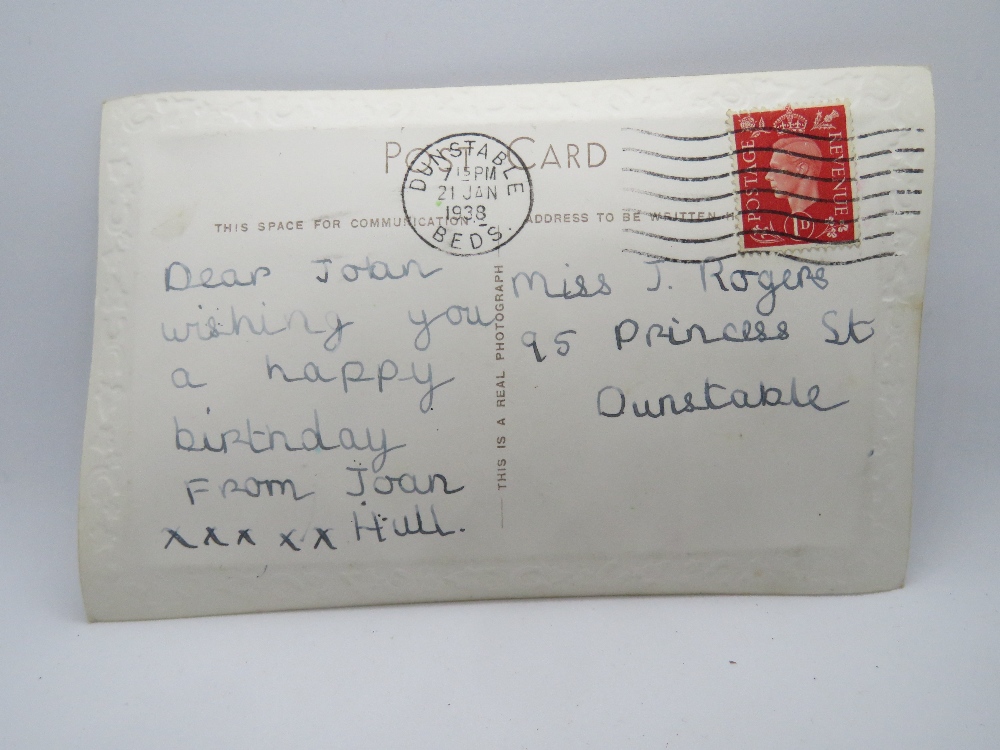 POST CARD
DUNSTABLE
7 15 PM
21 JAN
1938
BEDS.
POSTAGE
REVENUE
1D
THIS SPACE FOR COMMUNICATION
ADDRESS TO BE WRITTEN H
THIS IS A REAL PHOTOGRAPH
Dear Joan
wishing you
a happy
birthday
From Joan
x x x x x Hull.
Miss J. Rogers
95 Princess St
Dunstable